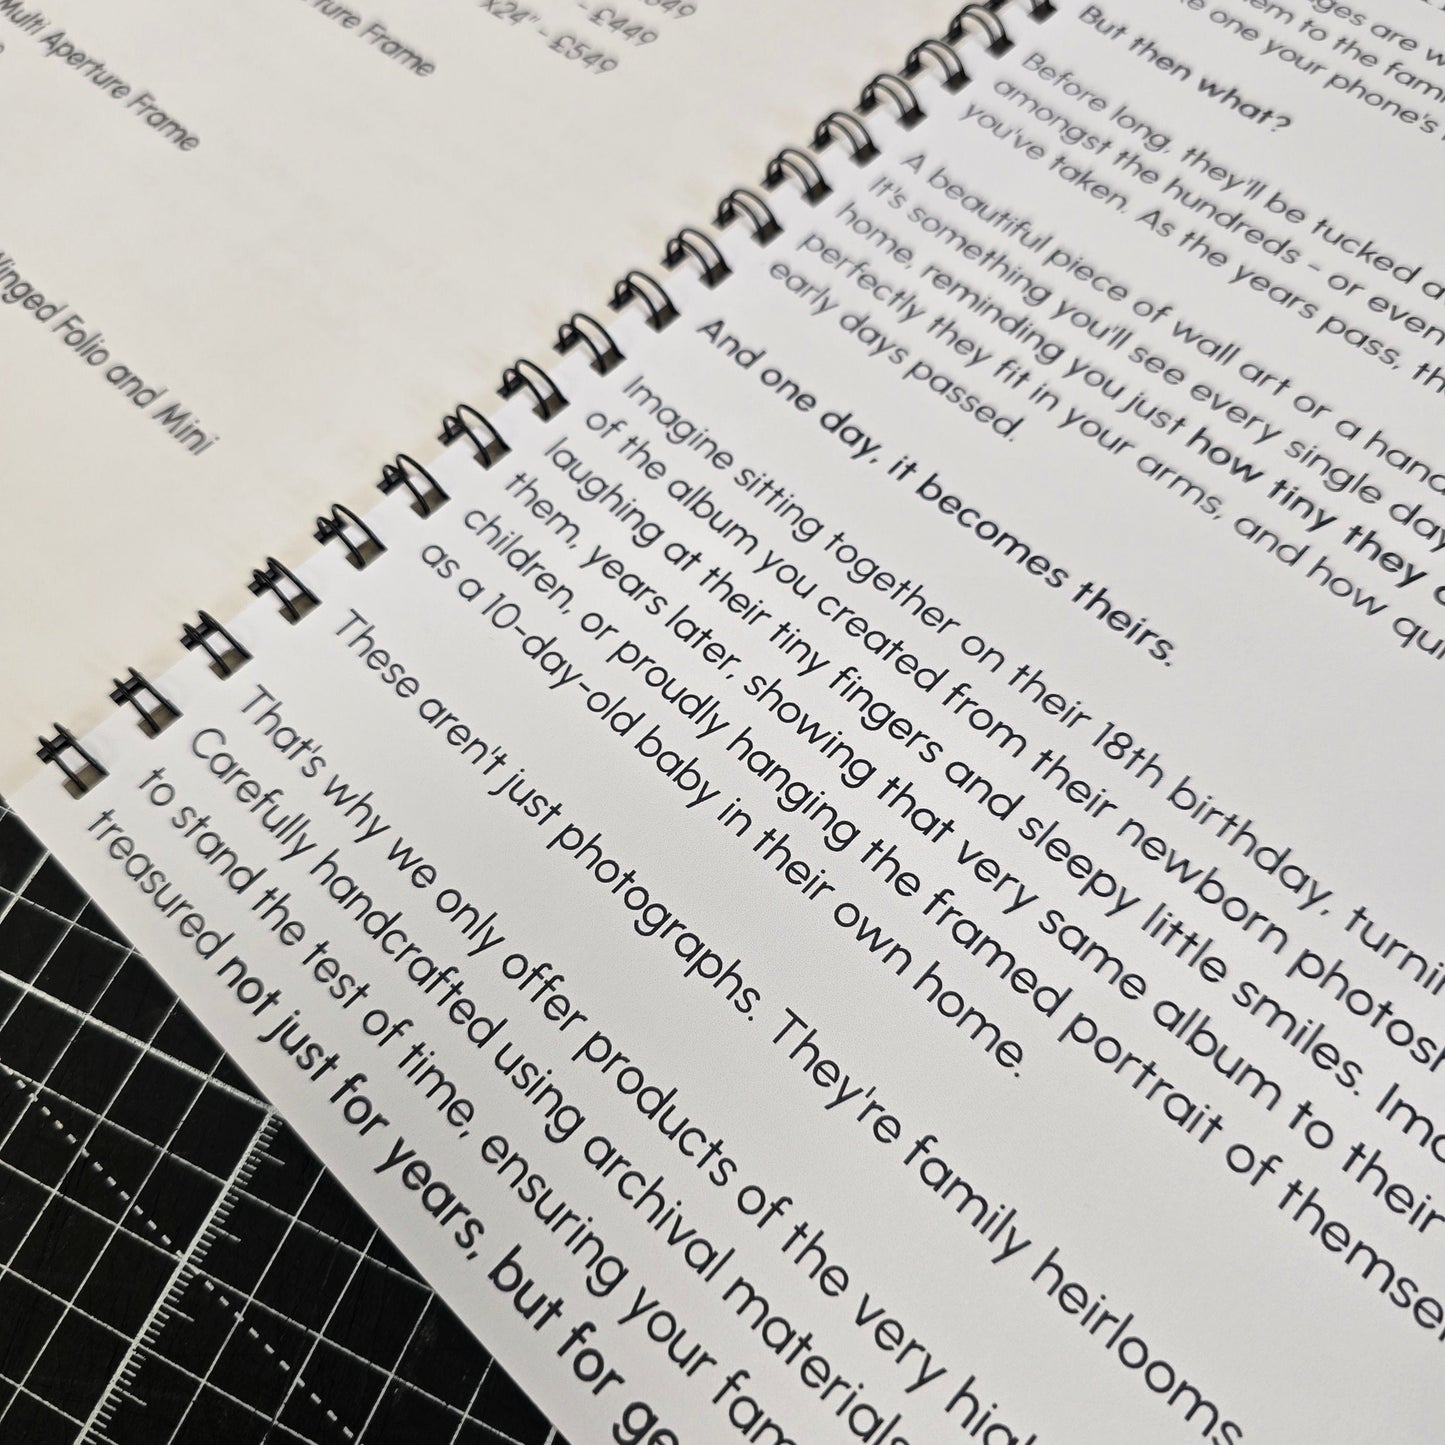 Multi Aperture Frame
ture Frame
- £449
x24" - £549
Winged Folio and Mini
ges are
em to the
one your phone's
But then what?
Before long, they'll be tucked
amongst the hundreds - or even
you've taken. As the years pass,
A beautiful piece of wall art or a
It's something you'll see every single day
home, reminding you just how tiny they
perfectly they fit in your arms, and how
early days passed.
And one day, it becomes theirs.
Imagine sitting together on their 18th birthday,
of the album you created from their newborn
laughing at their tiny fingers and sleepy little smiles.
them, years later, showing that very same album to their
children, or proudly hanging the framed portrait of
as a 10-day-old baby in their own home.
These aren't just photographs. They're family heirlooms
That's why we only offer products of the very
Carefully handcrafted using archival materials
to stand the test of time, ensuring your
treasured not just for years, but for